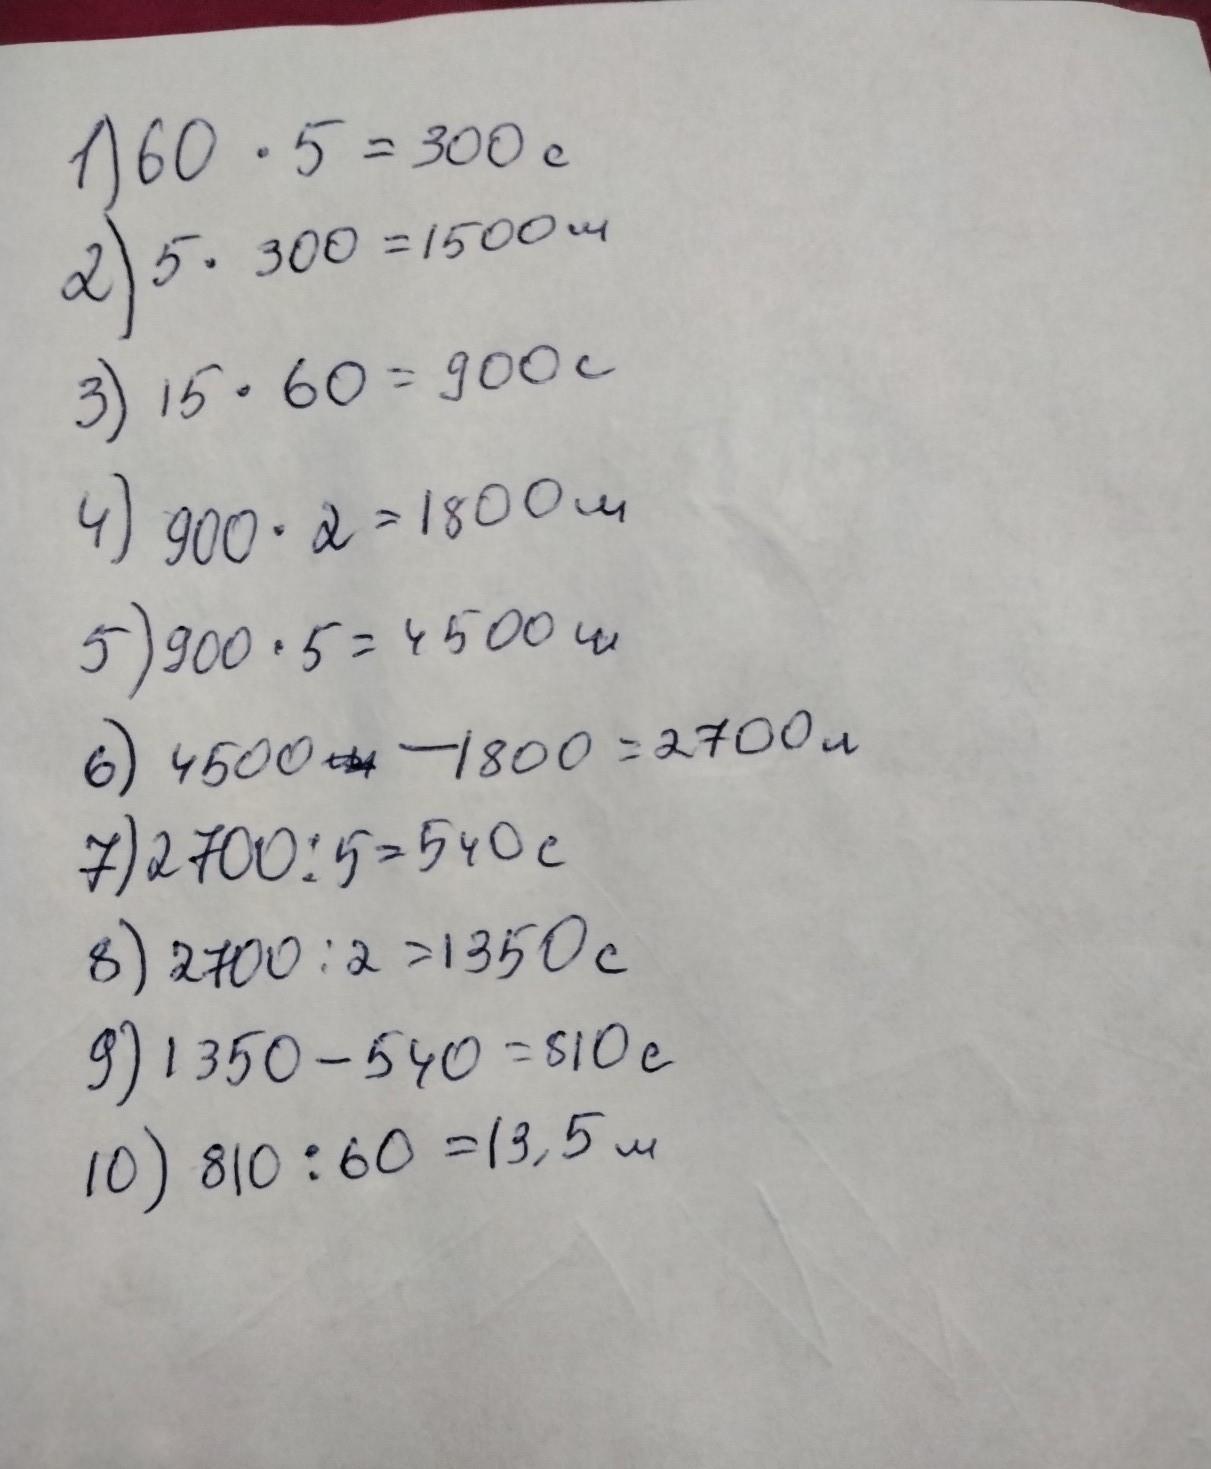 1) 60 · 5 = 300 с
2) 5 · 300 = 1500 м
3) 15 · 60 = 900 с
4) 900 · 2 = 1800 м
5) 900 · 5 = 4500 м
6) 4500 - 1800 = 2700 м
7) 2700 : 5 = 540 с
8) 2700 : 2 = 1350 с
9) 1350 - 540 = 810 с
10) 810 : 60 = 13,5 м